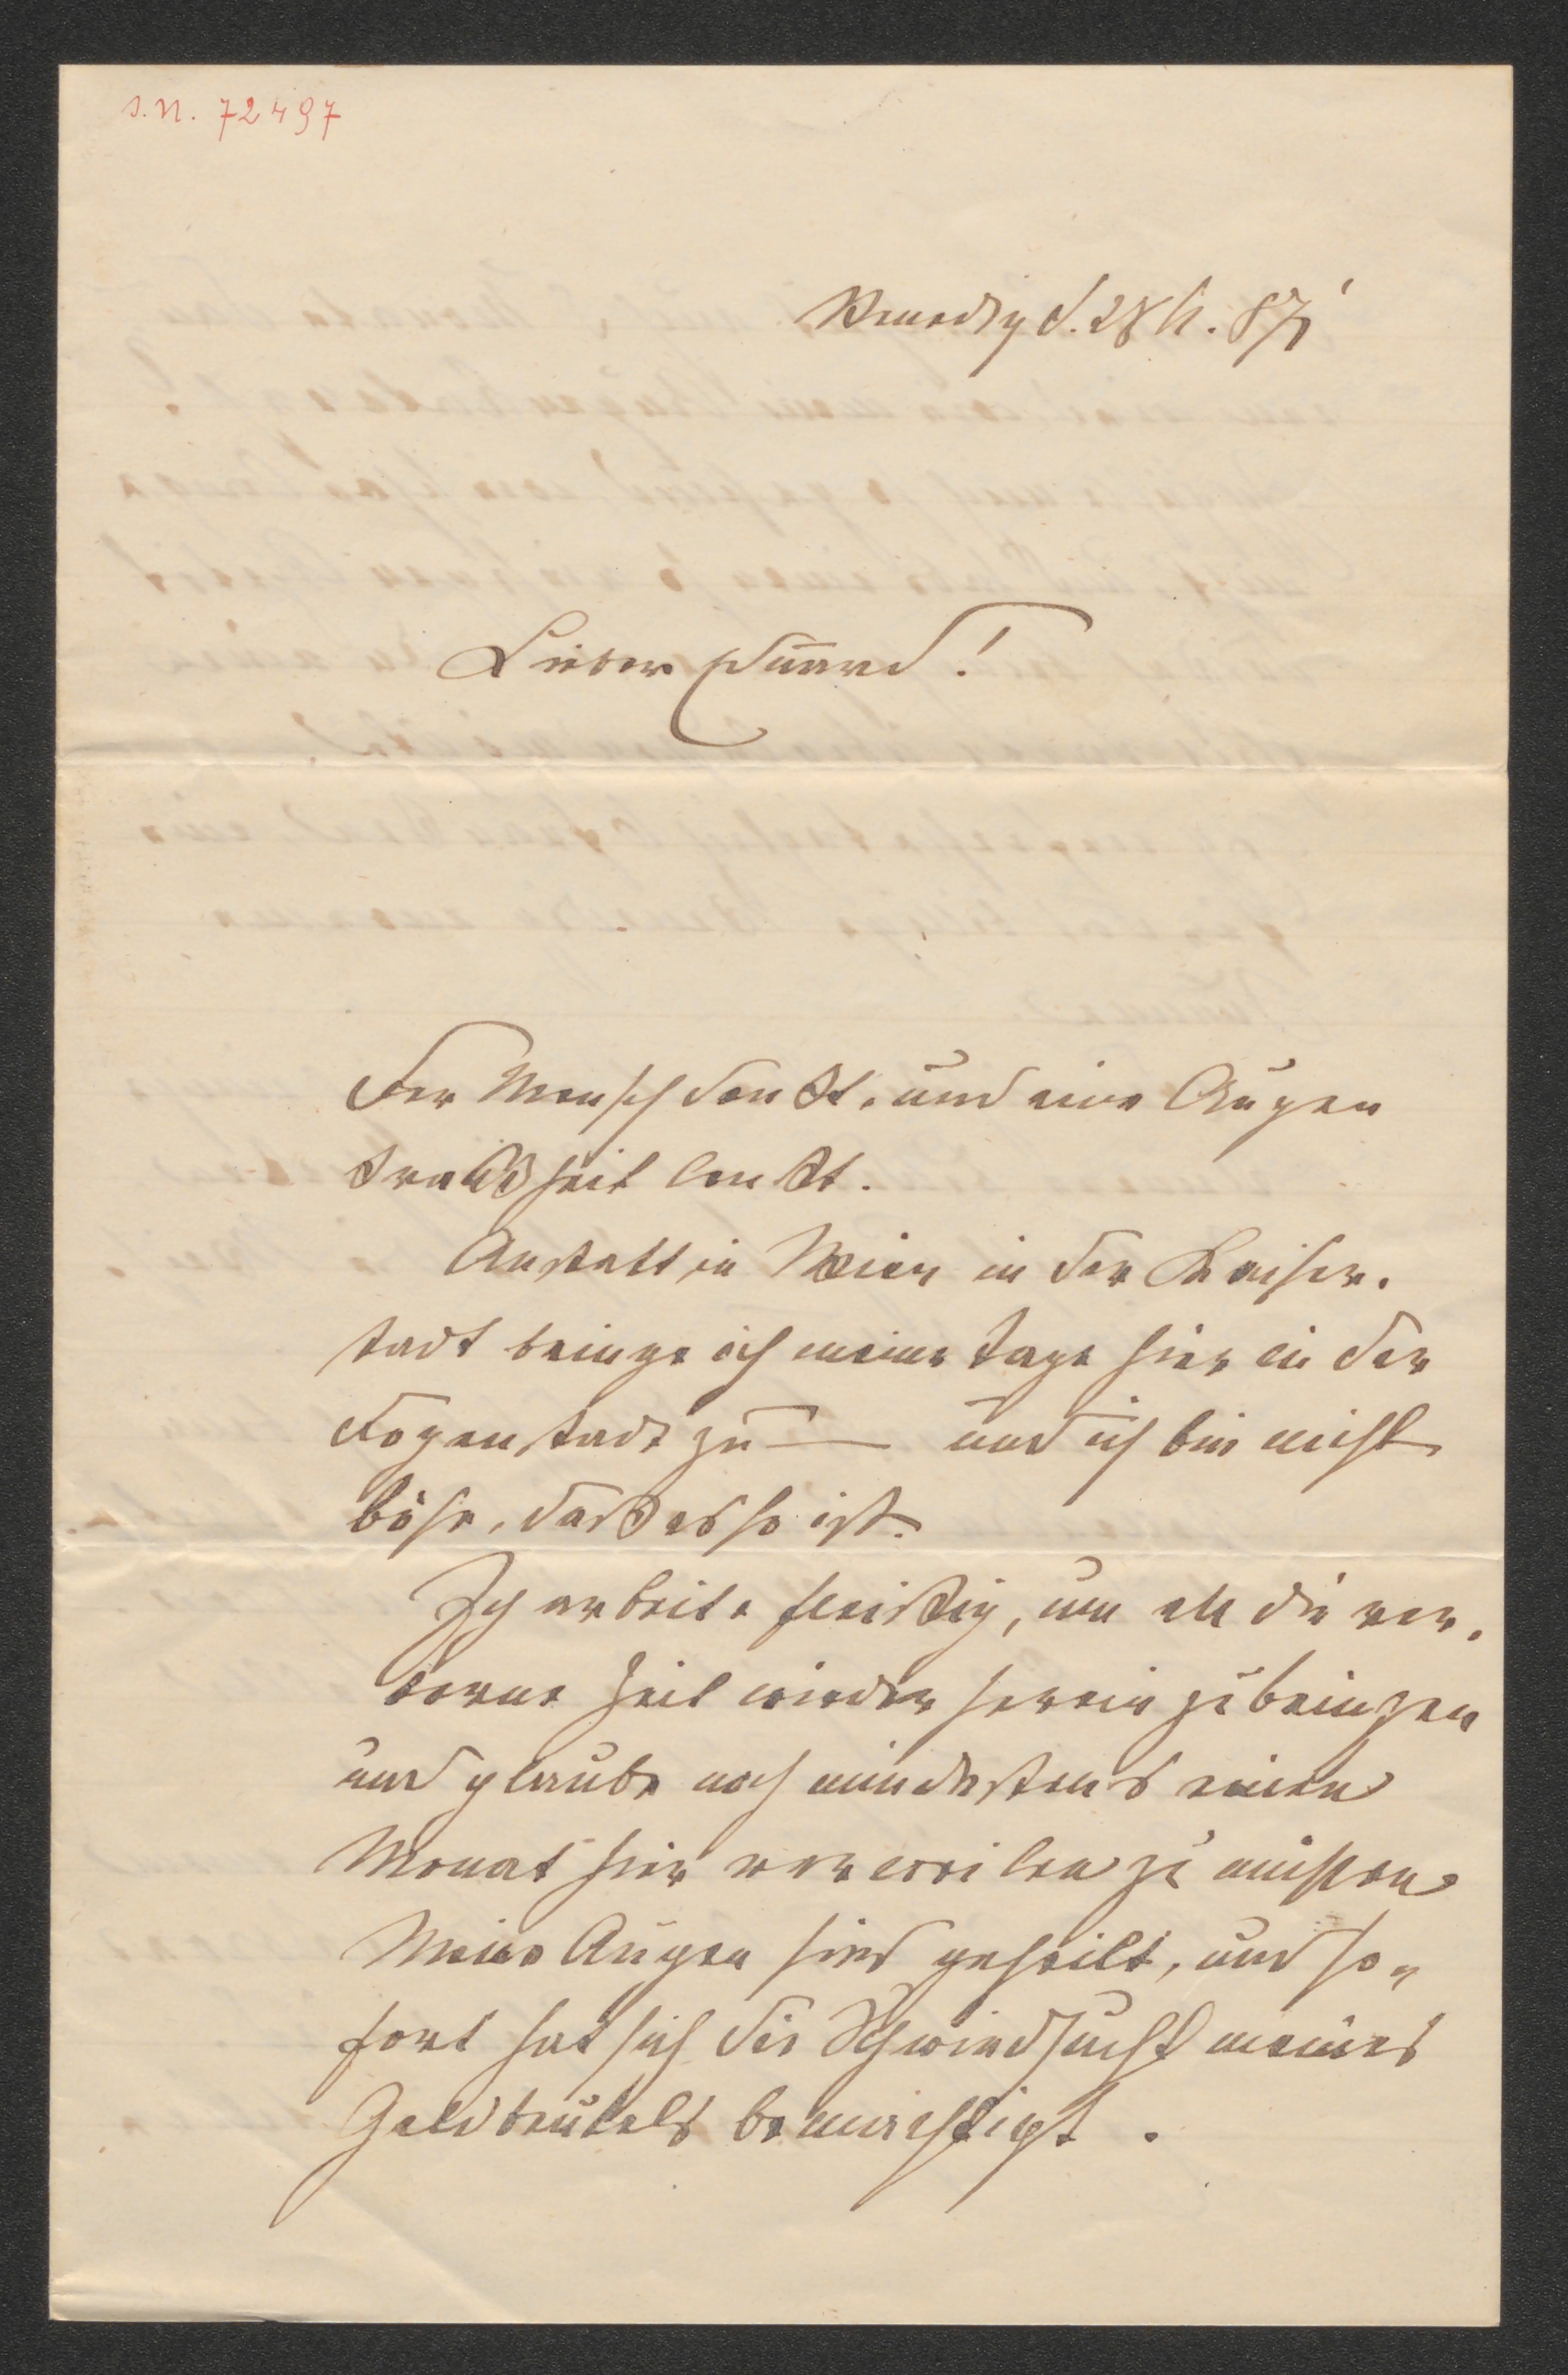 J.N. 72497
Venedig d. 28 A. 87
Lieber Eduard!
Der Mensch denkt, und eine Augen
krankheit lenkt.
Anstatt in Wien in der Kaiser-
stadt bringe ich meine Tage hier in der
Dogenstadt zu — und ich bin nicht
böse, dass es so ist.
Ich arbeite fleissig, um all die ver-
lorene Zeit wieder herein zu bringen
und glaube noch mindestens einen
Monat hier verweilen zu müssen.
Meine Augen sind geheilt, und so-
fort hat sich die Schwindsucht meines
Geldbeutels bemächtigt.